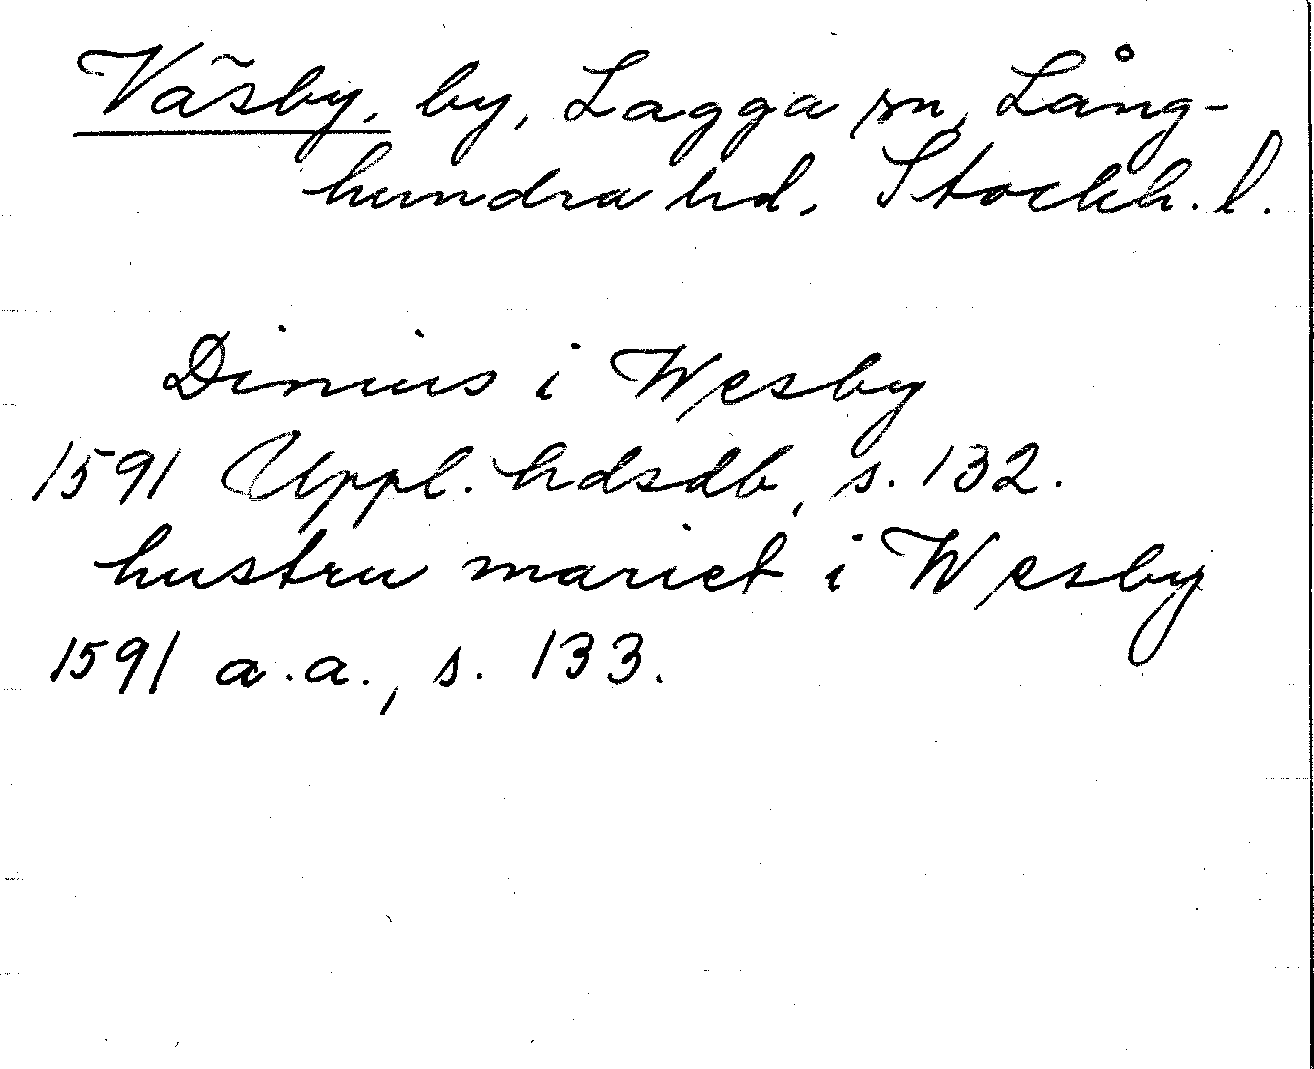 Väsby, by, Lagga sn, Lång-
hundra hd, Stockh. l.
Dinius i Wesby
1591 Uppl. hdsdb, s. 132.
hustru mariet i Wesby
1591 a.a., s. 133.